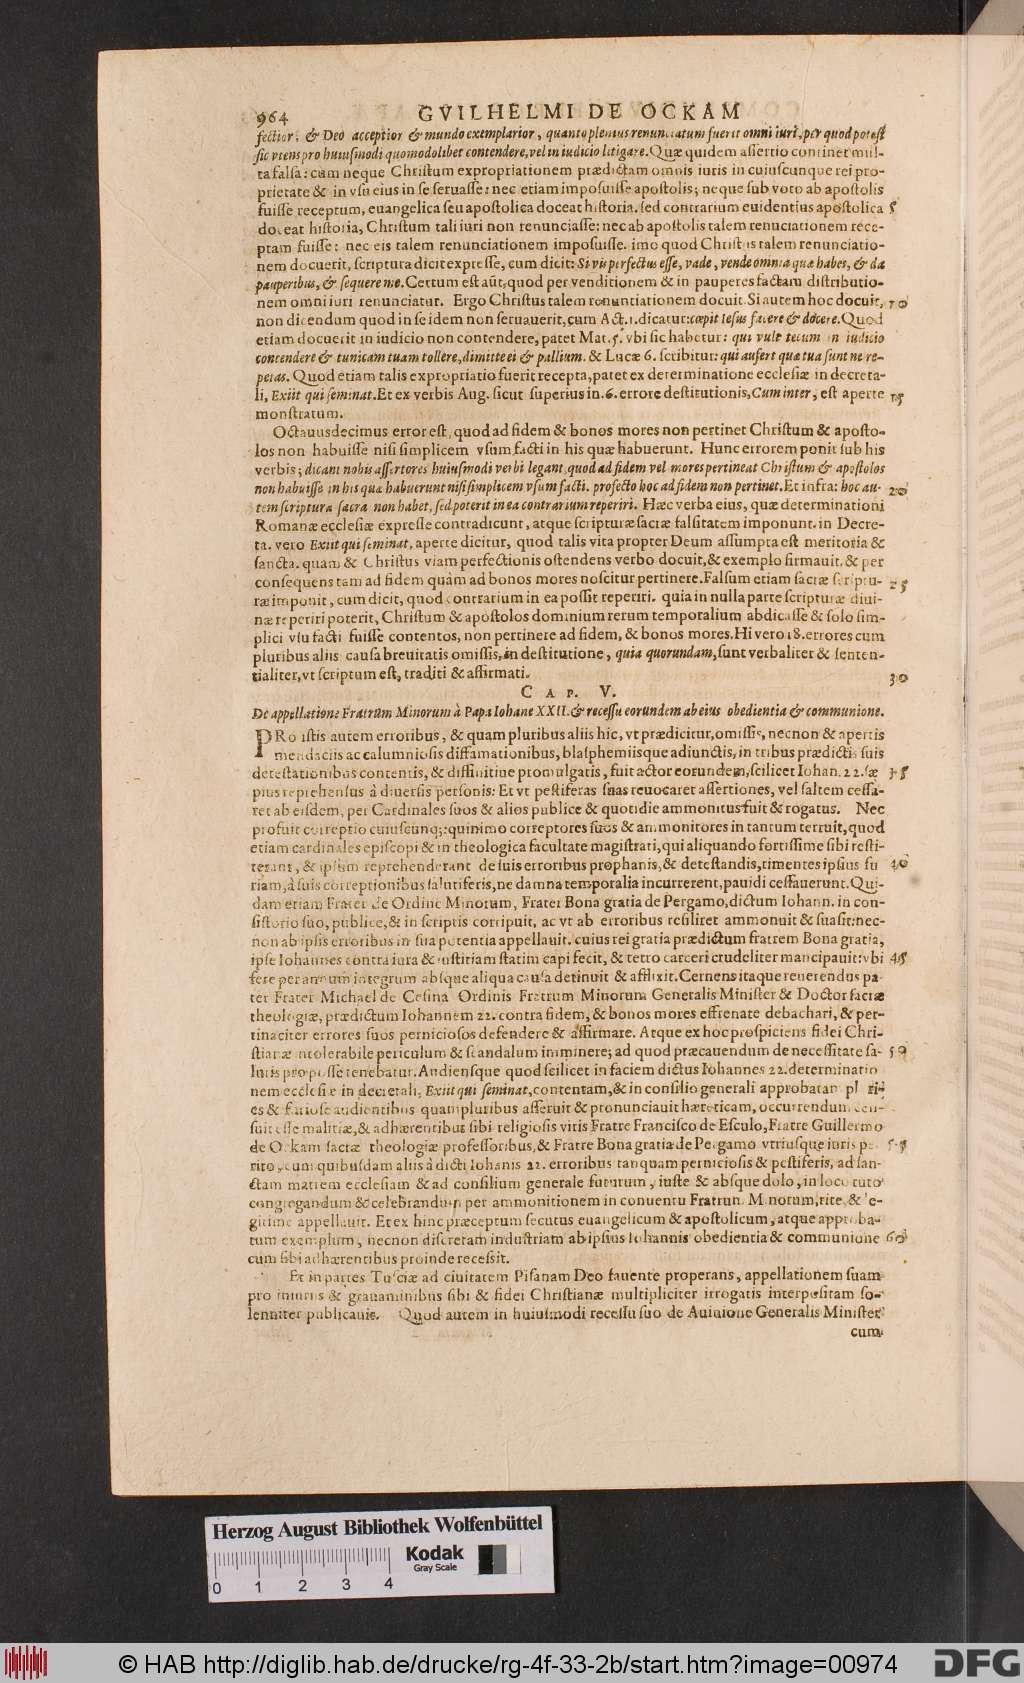 964 GVILHELMI DE OCKAM
fectior, & Deo acceptior & mundo exemplarior, quanto plenius renunciatum fuerit omni iuri, per quod potest
sic vtens pro huiusmodi quomodolibet contendere, vel in iudicio litigare. Quæ quidem assertio continet mul-
ta falsa: cùm neque Christum expropriationem prædictam omnis iuris in cuiuscunque rei pro-
prietate & in vsu eius in se seruasse: nec etiam imposuisse apostolis; neque sub voto ab apostolis
fuisse receptum, euangelica seu apostolica doceat historia. sed contrarium euidentius apostolica 5
doceat historia, Christum tali iuri non renunciasse: nec ab apostolis talem renūciationem rece-
ptam fuisse: nec eis talem renunciationem imposuisse. imo quod Christus talem renunciatio-
nem docuerit, scriptura dicit expresse, cum dicit: Si vis perfectus esse, vade, vende omnia quæ habes, & da
pauperibus, & sequere me. Certum est aūt, quod per venditionem & in pauperes factam distributio-
nem omni iuri renunciatur. Ergo Christus talem renuntiationem docuit. Si autem hoc docuit, 10
non dicendum quod in se idem non seruauerit, cum Act. 1. dicatur: cœpit Iesus facere & docere. Quod
etiam docuerit in iudicio non contendere, patet Mat. 5. vbi sic habetur: qui vult tecum in iudicio
contendere & tunicam tuam tollere, dimitte ei & pallium. & Lucæ 6. scribitur: qui aufert quæ tua sunt ne re-
petas. Quod etiam talis expropriatio fuerit recepta, patet ex determinatione ecclesiæ in decreta-
li, Exiit qui seminat. Et ex verbis Aug. sicut superius in. 6. errore destitutionis, Cum inter, est aperte 15
monstratum.
Octauusdecimus error est, quod ad fidem & bonos mores non pertinet Christum & aposto-
los non habuisse nisi simplicem vsum facti in his quæ habuerunt. Hunc errorem ponit sub his
verbis; dicant nobis assertores huiusmodi verbi legant, quod ad fidem vel mores pertineat Christum & apostolos
non habuisse in his quæ habuerunt nisi simplicem vsum facti. profecto hoc ad fidem non pertinet. Et infra: hoc au- 20
tem scriptura sacra non habet, sed poterit in ea contrarium reperiri. Hæc verba eius, quæ determinationi
Romanæ ecclesiæ expresse contradicunt, atque scripturæ sacræ falsitatem imponunt. in Decre-
ta. vero Exiit qui seminat, aperte dicitur, quod talis vita propter Deum assumpta est meritoria &
sancta. quam & Christus viam perfectionis ostendens verbo docuit, & exemplo firmauit. & per
consequens tam ad fidem quàm ad bonos mores noscitur pertinere. Falsum etiam sacræ scriptu- 25
ræ imponit, cum dicit, quod contrarium in ea possit reperiri. quia in nulla parte scripturæ diui-
næ reperiri poterit, Christum & apostolos dominium rerum temporalium abdicasse & solo sim-
plici vsu facti fuisse contentos, non pertinere ad fidem, & bonos mores. Hi vero 18. errores cum
pluribus aliis causa breuitatis omissis, in destitutione, quia quorundam, sunt verbaliter & senten-
tialiter, vt scriptum est, traditi & affirmati. 30
CAP. V.
De appellatione Fratrum Minorum à Papa Iohane XXII. & recessu eorundem ab eius obedientia & communione.
PRo istis autem erroribus, & quam pluribus aliis hic, vt prædicitur, omissis, necnon & apertis
mendaciis ac calumniosis diffamationibus, blasphemiisque adiunctis, in tribus prædictis suis
detestationibus contentis, & diffinitiue promulgatis, fuit actor eorundem, scilicet Iohan. 22. sæ 35
pius reprehensus à diuersis personis: Et vt pestiferas suas reuocaret assertiones, vel saltem cessa-
ret ab eisdem, per Cardinales suos & alios publice & quotidie ammonitus fuit & rogatus. Nec
profuit correptio cuiuscunq;: quinimo correptores suos & ammonitores in tantum terruit, quod
etiam cardinales episcopi & in theologica facultate magistrati, qui aliquando fortissime sibi resti-
terant, & ipsum reprehenderant de suis erroribus prophanis, & detestandis, timentes ipsius fu 40
riam, à suis correptionibus salutiferis, ne damna temporalia incurrerent, pauidi cessauerunt. Qui-
dam etiam Frater de Ordine Minorum, Frater Bona gratia de Pergamo, dictum Iohann. in con-
sistorio suo, publice, & in scriptis corripuit, ac vt ab erroribus resiliret ammonuit & suasit: nec-
non ab ipsis erroribus in sua potentia appellauit. cuius rei gratia prædictum fratrem Bona gratia,
ipse Iohannes contra iura & iustitiam statim capi fecit, & tetro carceri crudeliter mancipauit: vbi 45
fere per annum integrum absque aliqua causa detinuit & afflixit. Cernens itaque reuerendus pa-
ter Frater Michael de Cesina Ordinis Fratrum Minorum Generalis Minister & Doctor sacræ
theologiæ, prædictum Iohannem 22. contra fidem, & bonos mores effrenate debachari, & per-
tinaciter errores suos perniciosos defendere & affirmare. Atque ex hoc prospiciens fidei Chri-
stianæ intolerabile periculum & scandalum imminere; ad quod præcauendum de necessitate sa- 50
lutis pro posse tenebatur. Audiensque quod scilicet in faciem dictus Iohannes 22. determinatio
nem ecclesiæ in decretali, Exiit qui seminat, contentam, & in consilio generali approbatam pluri-
es & furiose audientibus quampluribus asseruit & pronunciauit hæreticam, occurrendum cen-
suit esse malitiæ, & adhærentibus sibi religiosis viris Fratre Francisco de Esculo, Fratre Guillermo
de Ockam sacræ theologiæ professoribus, & Fratre Bona gratia de Pergamo vtriusque iuris pe- 55
rito, cum quibusdam aliis à dicti Iohanis 22. erroribus tanquam perniciosis & pestiferis, ad san-
ctam matrem ecclesiam & ad consilium generale futurum, iuste & absque dolo, in loco tuto
congregandum & celebrandum per ammonitionem in conuentu Fratrum Minorum, rite, & le-
gitime appellauit. Et ex hinc præceptum secutus euangelicum & apostolicum, atque approba-
tum exemplum, necnon discretam industriam ab ipsius Iohannis obedientia & communione 60
cum sibi adhærentibus proinde recessit.
Et in partes Tusciæ ad ciuitatem Pisanam Deo fauente properans, appellationem suam
pro iniuriis & grauaminibus sibi & fidei Christianæ multipliciter irrogatis interpositam so-
lenniter publicauit. Quod autem in huiusmodi recessu suo de Auinione Generalis Minister
cum
Herzog August Bibliothek Wolfenbüttel
Kodak
Gray Scale
0 1 2 3 4
© HAB http://diglib.hab.de/drucke/rg-4f-33-2b/start.htm?image=00974
DFG